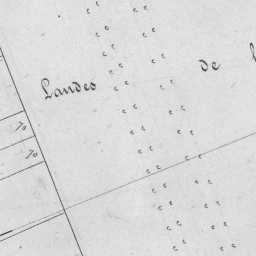 Landes de
70
70